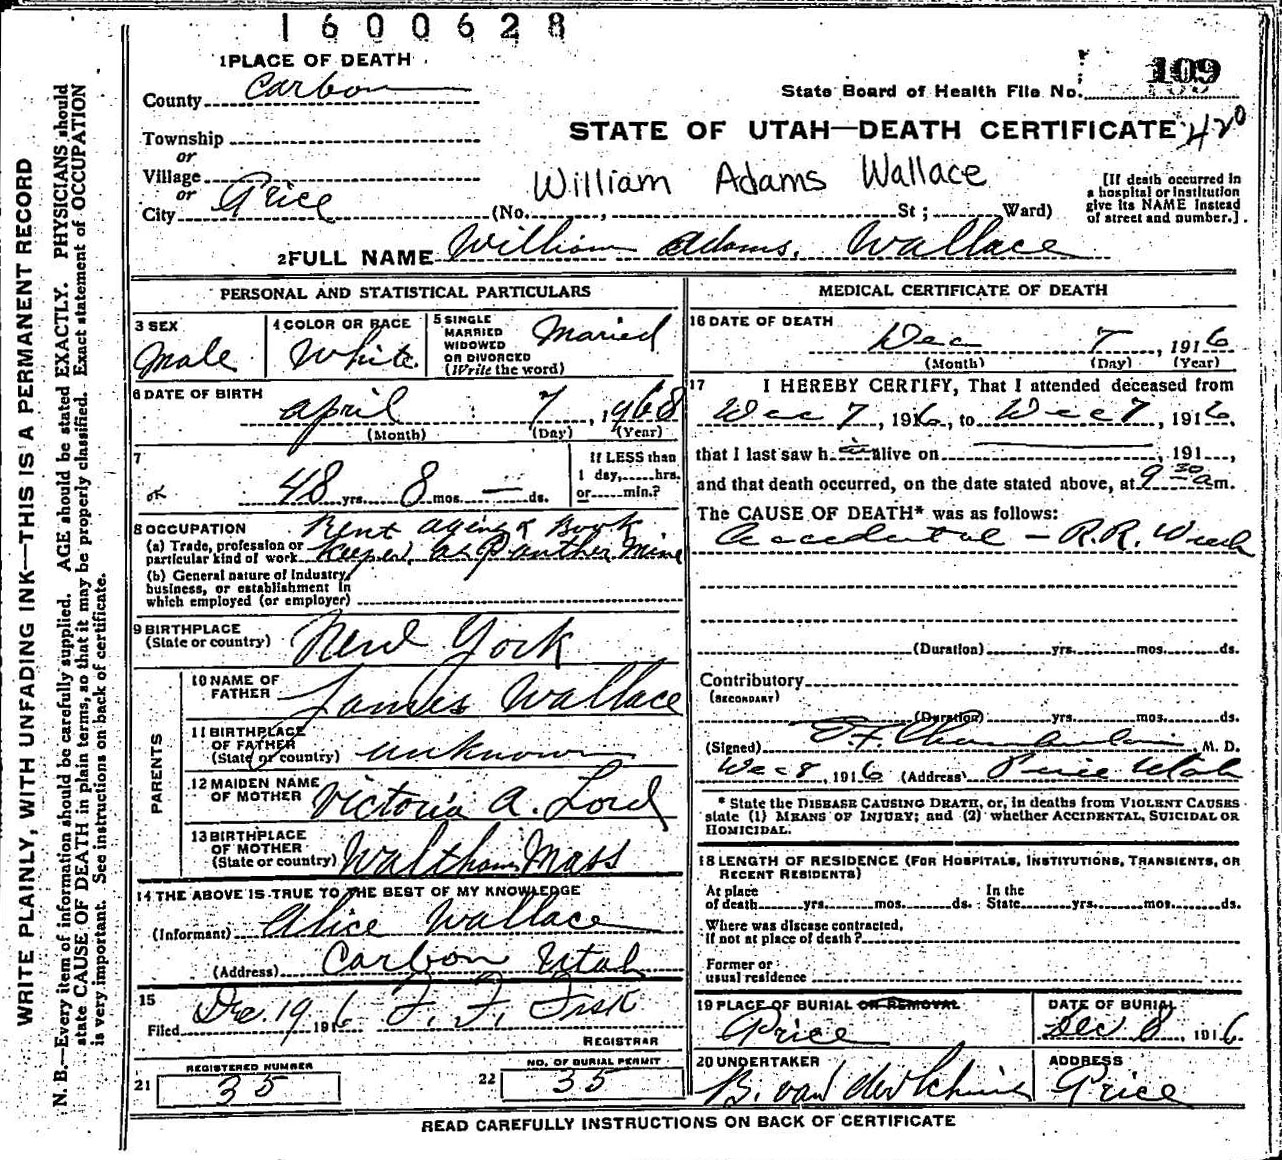 1600628
1 PLACE OF DEATH
County Carbon
State Board of Health File No. 109
Township
or
STATE OF UTAH—DEATH CERTIFICATE 420
Village
or
William Adams Wallace
City Price (No. , St ; Ward)
[If death occurred in
a hospital or institution
give its NAME instead
of street and number.]
2 FULL NAME William Adams, Wallace
WRITE PLAINLY, WITH UNFADING INK—THIS IS A PERMANENT RECORD
N. B.—Every item of information should be carefully supplied. AGE should be stated EXACTLY. PHYSICIANS should
state CAUSE OF DEATH in plain terms, so that it may be properly classified. Exact statement of OCCUPATION
is very important. See instructions on back of certificate.
PERSONAL AND STATISTICAL PARTICULARS
3 SEX
Male
4 COLOR OR RACE
White
5 SINGLE
MARRIED
WIDOWED
OR DIVORCED
(Write the word)
Maried
6 DATE OF BIRTH
April 7, 1968
(Month) (Day) (Year)
7
OK
48 yrs. 8 mos. — ds.
If LESS than
1 day, hrs.
or min.?
8 OCCUPATION
(a) Trade, profession or
particular kind of work
Rent Agent & Book
Keeper, at Panther Mine
(b) General nature of Industry,
business, or establishment in
which employed (or employer)
9 BIRTHPLACE
(State or country)
New York
PARENTS
10 NAME OF
FATHER
James Wallace
11 BIRTHPLACE
OF FATHER
(State or country)
unknown
12 MAIDEN NAME
OF MOTHER
Victoria A. Lord
13 BIRTHPLACE
OF MOTHER
(State or country)
Waltham Mass
14 THE ABOVE IS TRUE TO THE BEST OF MY KNOWLEDGE
(Informant) Alice Wallace
(Address) Carbon Utah
15
Filed Dec. 19 1916 F. F. Fisk
REGISTRAR
21 REGISTERED NUMBER
35
22 NO. OF BURIAL PERMIT
35
MEDICAL CERTIFICATE OF DEATH
16 DATE OF DEATH
Dec 7, 1916
(Month) (Day) (Year)
17 I HEREBY CERTIFY, That I attended deceased from
Dec 7, 1916, to Dec 7, 1916,
that I last saw h alive on , 191 ,
and that death occurred, on the date stated above, at 9 30 am.
The CAUSE OF DEATH* was as follows:
Accidental - R.R. Wreck
(Duration) yrs. mos. ds.
Contributory
(SECONDARY)
(Duration) yrs. mos. ds.
(Signed) E. F. Chamberlain M. D.
Dec 8, 1916 (Address) Price Utah
* State the DISEASE CAUSING DEATH, or, in deaths from VIOLENT CAUSES
state (1) MEANS OF INJURY; and (2) whether ACCIDENTAL, SUICIDAL OR
HOMICIDAL.
18 LENGTH OF RESIDENCE (FOR HOSPITALS, INSTITUTIONS, TRANSIENTS, OR
RECENT RESIDENTS)
At place
of death yrs. mos. ds.
In the
State yrs. mos. ds.
Where was disease contracted,
if not at place of death?
Former or
usual residence
19 PLACE OF BURIAL OR REMOVAL
Price
DATE OF BURIAL
Dec 8, 1916.
20 UNDERTAKER
B. van
ADDRESS
Price
READ CAREFULLY INSTRUCTIONS ON BACK OF CERTIFICATE